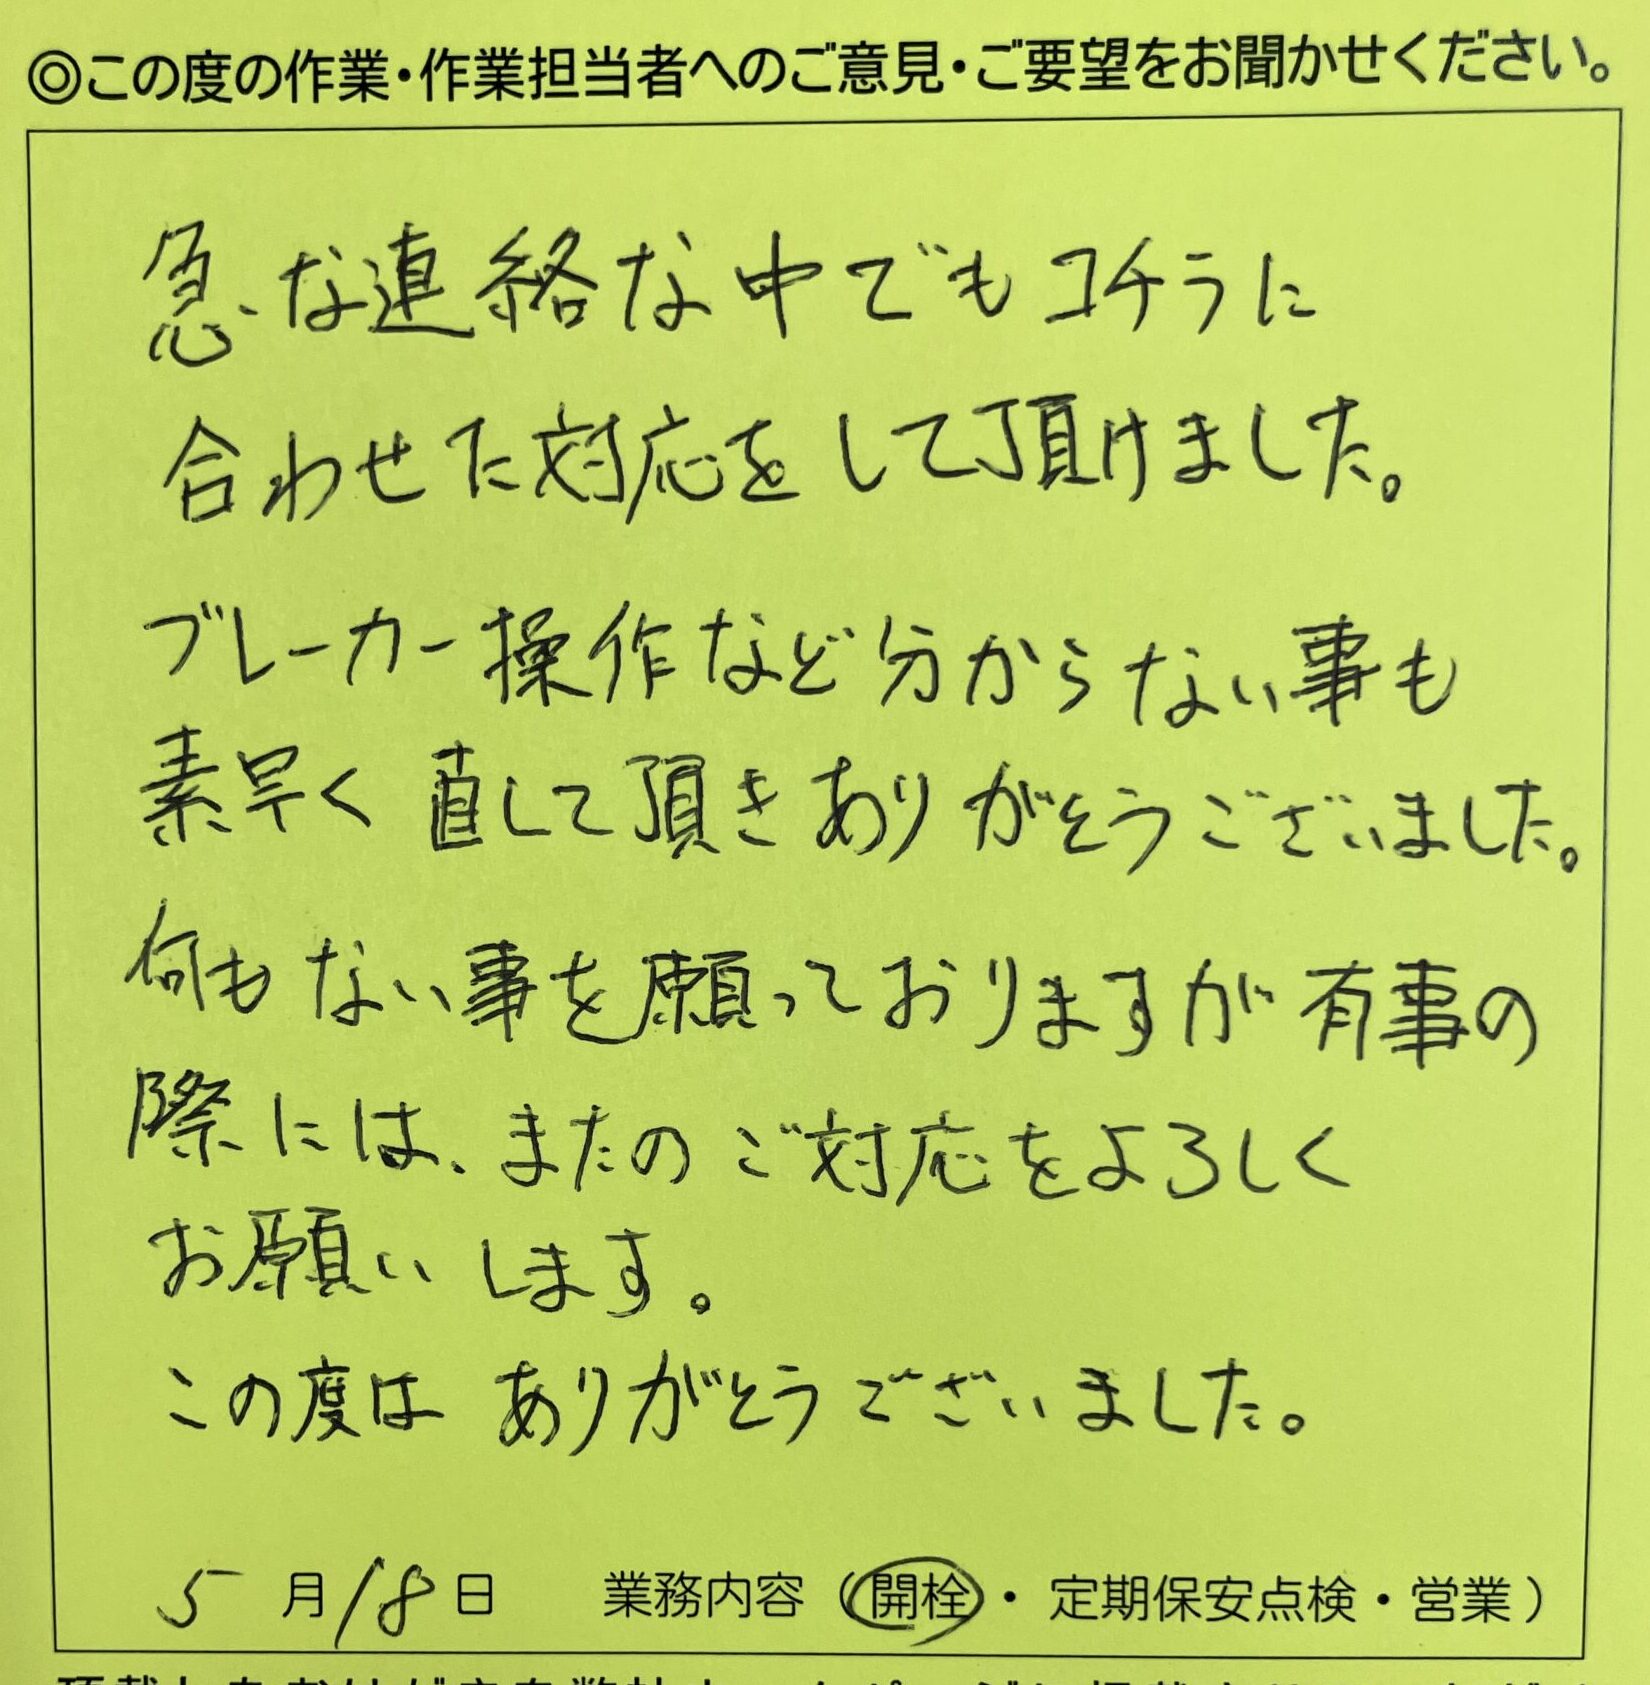 ◎この度の作業・作業担当者へのご意見・ご要望をお聞かせください。
急な連絡な中でもコチラに
合わせた対応をして頂けました。
ブレーカー操作など分からない事も
素早く直して頂きありがとうございました。
何もない事を願っておりますが有事の
際には、またのご対応をよろしく
お願いします。
この度はありがとうございました。
5月18日 業務内容(開栓・定期保安点検・営業)